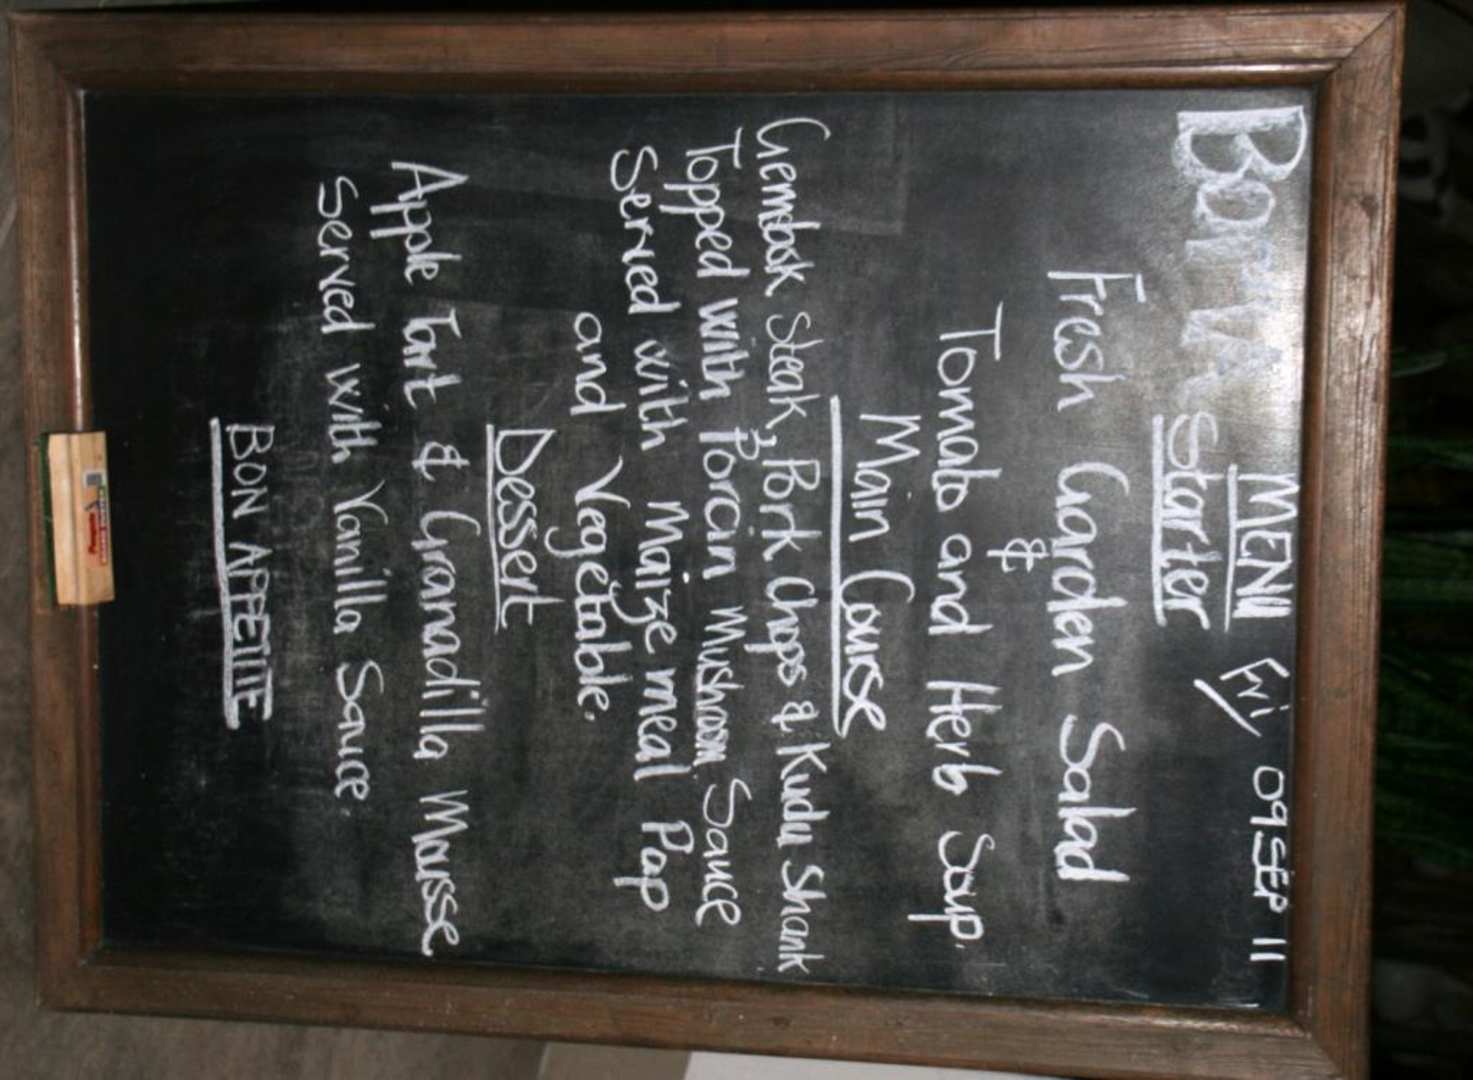 BOMA MENU Fri 09 SEP 11
Starter
Fresh Garden Salad
&
Tomato and Herb Soup.
Main Course
Gemsbok Steak, Pork Chops & Kudu Shank
Topped with Porcin Mushroom Sauce
Served with Maize meal Pap
and Vegetable.
Dessert
Apple Tart & Granadilla Mousse
Served with Vanilla Sauce
BON APPETITE